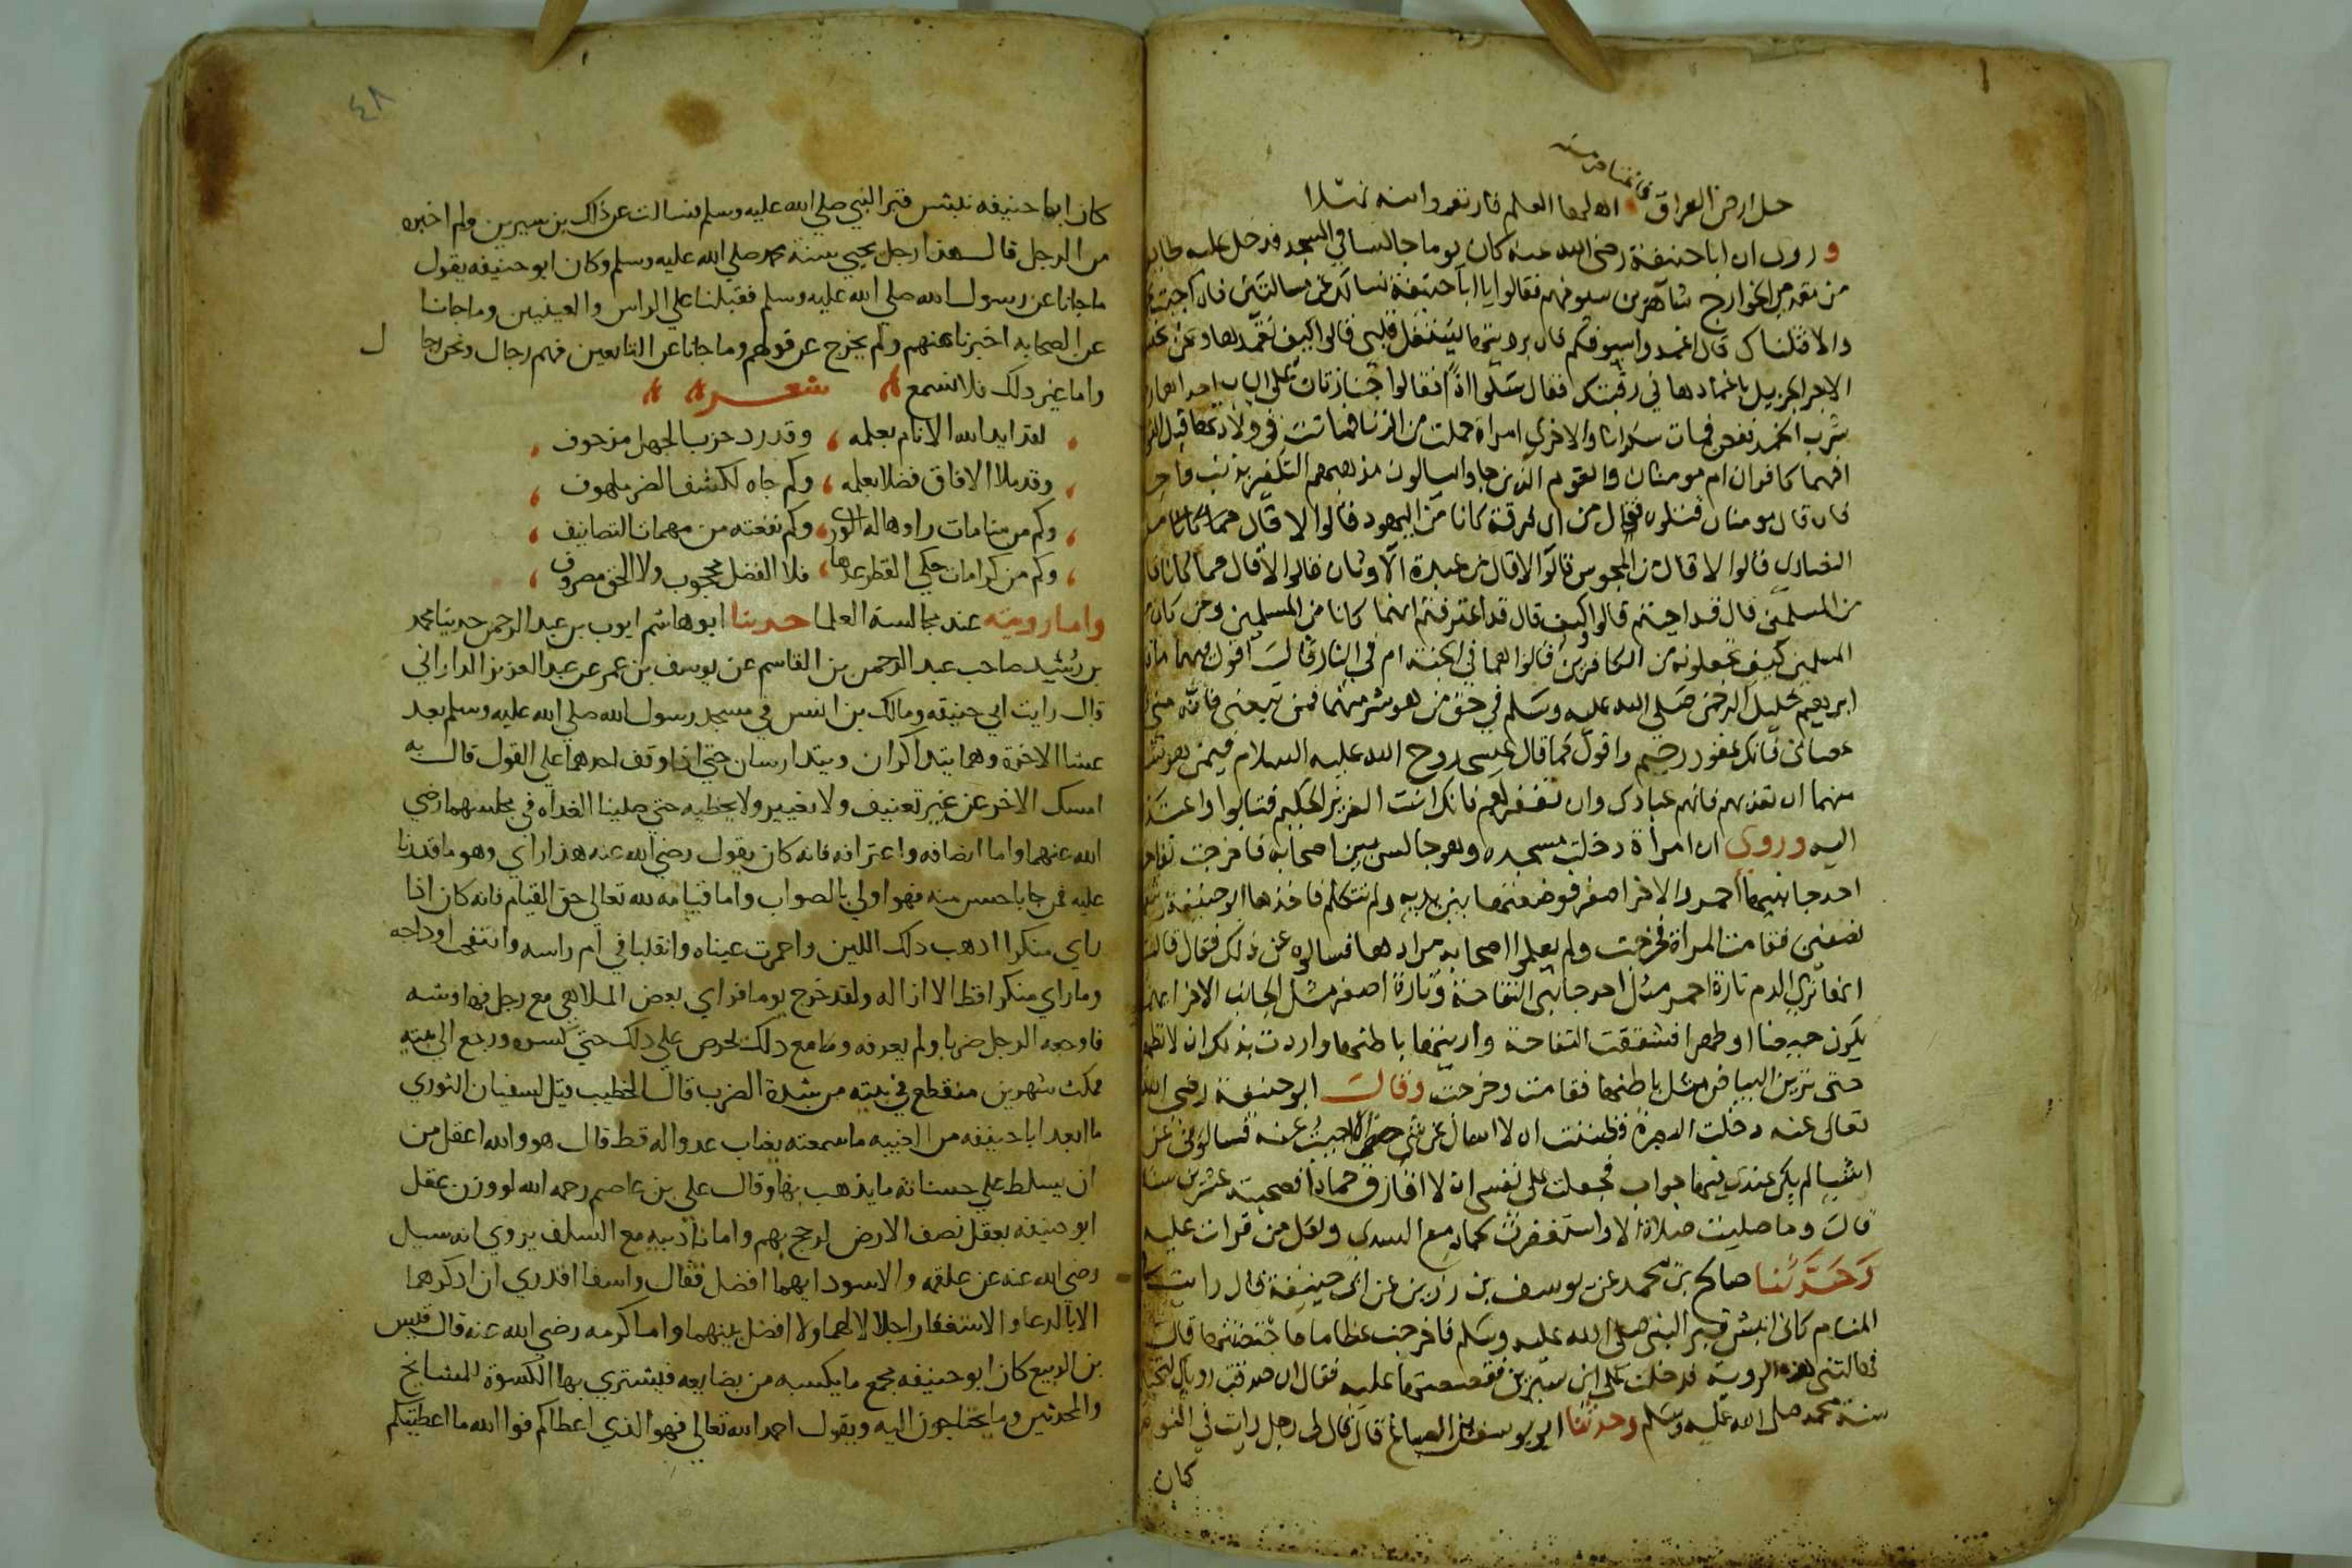 فانتقاص منه
حل ارض العراق اهلها العلم فارتعدوا منه
وروي ان ابا حنيفة رضي الله عنه كان يوما جالسا في المسجد فدخل عليه
من الخوارج شاهرين سيوفهم فقالوا يا ابا حنيفة نسالك عن مسالتين فان اجبت
والا قتلناك قال اغمدوا سيوفكم فان برويتها يشتغل قلبي قالوا كيف نغمدها ونحن
الاجر الجزيل باغمادها في رقبتك فقال سلوا اذا فقالوا جنازتان على الباب احداهما
شرب الخمر فمات سكرانا والاخرى امراة حملت من الزنا فماتت في ولادتها قبل
افهما كافران ام مومنان والقوم الذين جاوا يسالون مذهبهم التكفير بذنب واحد
فان قال مومنان قتلوه فقال من اي فرقة كانا من اليهود قالوا لا قال
النصارى قالوا لا قال من المجوس قالوا لا قال من عبدة الاوثان قالوا لا قال فمما كانا قا
من المسلمين قال قد اجبتم قالوا كيف قال قد اعترفتم انهما كانا من المسلمين ومن كان
المسلمين كيف تجعلونه من الكافرين قالوا هما في الجنة ام في النار قال اقول فيهما ما قا
ابرهيم خليل الرحمن صلى الله عليه وسلم في حق من هو شر منهما فمن تبعني فانه مني
عصاني فانك غفور رحيم واقول كما قال عيسى روح الله عليه السلام فيمن هو شر
منهما ان تعذبهم فانهم عبادك وان تغفر لهم فانك انت العزيز الحكيم فتابوا واعتذ
اليه وروي ان امراة دخلت مسجده وهو جالس بين اصحابه فاخرجت تفاح
احد جانبيها احمر والاخر اصفر فوضعتها بين يديه ولم تتكلم فاخذها ابو حنيفة
نصفين فقامت المراة فخرجت ولم يعلموا اصحابه مرادها فسالوه عن ذلك فقال قالت
انها ترى الدم تارة احمر مثل احد جانبي التفاحة وتارة اصفر مثل الجانب الاخر
يكون حيضا او طهرا فشققت التفاحة واريتها باطنها واردت بذلك ان لا تطهر
حتى ترين البياض مثل باطنها فقامت وخرجت وقال ابو حنيفة رضي الله
تعالى عنه دخلت البصرة فظننت ان لا اسال عن شي الا اجبت عنه فسالوني عن
اشيا لم يكن عندي فيها جواب فجعلت على نفسي ان لا افارق حمادا فصحبته عشرين سنة
قال وما صليت صلاة الا واستغفرت لحماد مع والدي ولكل من قرات عليه
وحدثنا صالح بن محمد عن يوسف بن رزين عن ابي حنيفة قال رايت
المنام كاني انبش قبر النبي صلى الله عليه وسلم فاخرجت عظاما فاحتضنتها قال
فهالتني هذه الروية فدخلت على ابن سيرين فقصصتها عليه فقال ان صدقت روياك لتحيين
سنة محمد صلى الله عليه وسلم وحدثنا ابو يوسف بن الصباغ قال قال لي رجل رايت في النوم
كان
٤٨
كان ابا حنيفه نبش قبر النبي صلى الله عليه وسلم فسالت عن ذاك بن سيرين ولم اخبره
من الرجل قال هذا رجل يحيي سنة محمد صلى الله عليه وسلم وكان ابو حنيفه يقول
ما جانا عن رسول الله صلى الله عليه وسلم فقبلنا على الراس والعينين وما جانا
عن الصحابه اخترنا منهم ولم يخرج عن قولهم وما جانا عن التابعين فهم رجال ونحن رجال
واما غير ذلك فلا نسمع شعر
لقد ايد الله الانام بعلمه وقد رد حزب الجهل مزحوف
وقد ملا الافاق فضلا بعلمه وكم جاه لكشف الضر ملهوف
وكم من منامات راوها له الورى وكم نفعته من مهمات التصانيف
وكم من كرامات حكي القطر عدها فلا الفضل محجوب ولا الحق مصروف
واما رويته عند مجالسة العلما حدثنا ابو هاشم ايوب بن عبد الرحمن حدثنا محمد
بن رشيد صاحب عبد الرحمن بن القاسم عن يوسف بن عمر عن عبد العزيز الداراني
قال رايت ابي حنيفه ومالك بن انس في مسجد رسول الله صلى الله عليه وسلم بعد
عشا الاخرة وهما يتذاكران ويتدارسان حتى اذا وقف احدهما على القول قال به
امسك الاخر عن غير تعنيف ولا تغيير ولا يخطيه حتى صلينا الغداه في مجلسهما رضي
الله عنهما واما انصافه واعترافه فانه كان يقول رضي الله عنه هذا راي وهو ما قدرنا
عليه فمن جا باحسن منه فهو اولى بالصواب واما قيامه لله تعالى حق القيام فانه كان اذا
راي منكرا اذهب ذلك اللين واحمرت عيناه وانقلبا في ام راسه وانتفخ اوداجه
وما راي منكرا قط الا ازاله ولقد خرج يوما فراي بعض الملاهي مع رجل فهاوشه
فاوجعه الرجل ضربا ولم يعرفه وما مع ذلك يحرص على ذلك حتى كسره ورجع الى بيته
فمكث شهرين منقطع في بيته من شدة الضرب قال الخطيب قيل لسفيان الثوري
ما ابعد ابا حنيفه من الغيبه ما سمعته يغتاب عدوا له قط قال هو والله اعقل من
ان يسلط على حسناته ما يذهب بها وقال علي بن عاصم رحمه الله لو وزن عقل
ابو حنيفه بعقل نصف الارض لرجح بهم واما تادبه مع السلف يروي انه سيل
رضي الله عنه عن علقمه والاسود ايهما افضل فقال واسفا اقدري ان اذكرهما
الا بالدعا والاستغفار اجلالا لهما ولا افضل بينهما واما كرمه رضي الله عنه قال قيس
بن الربيع كان ابو حنيفه يجمع ما يكسبه من بضايعه فيشتري بها الكسوة للمشايخ
والمحدثين وما يحتاجون اليه ويقول احمد الله تعالى فهو الذي اعطاكم فوالله ما اعطيتكم